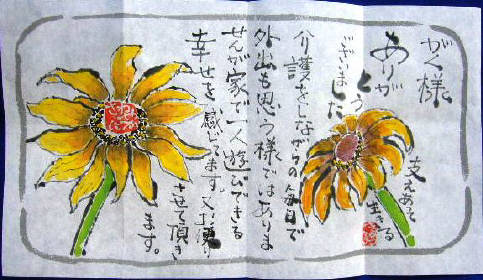 がく様
ありが
とう
ございました
介護をしながらの毎日で
外出も思う様ではありま
せんが家で一人遊びできる
幸せを感じてます。又お便り
させて頂き
ます。
支えあって
生きる